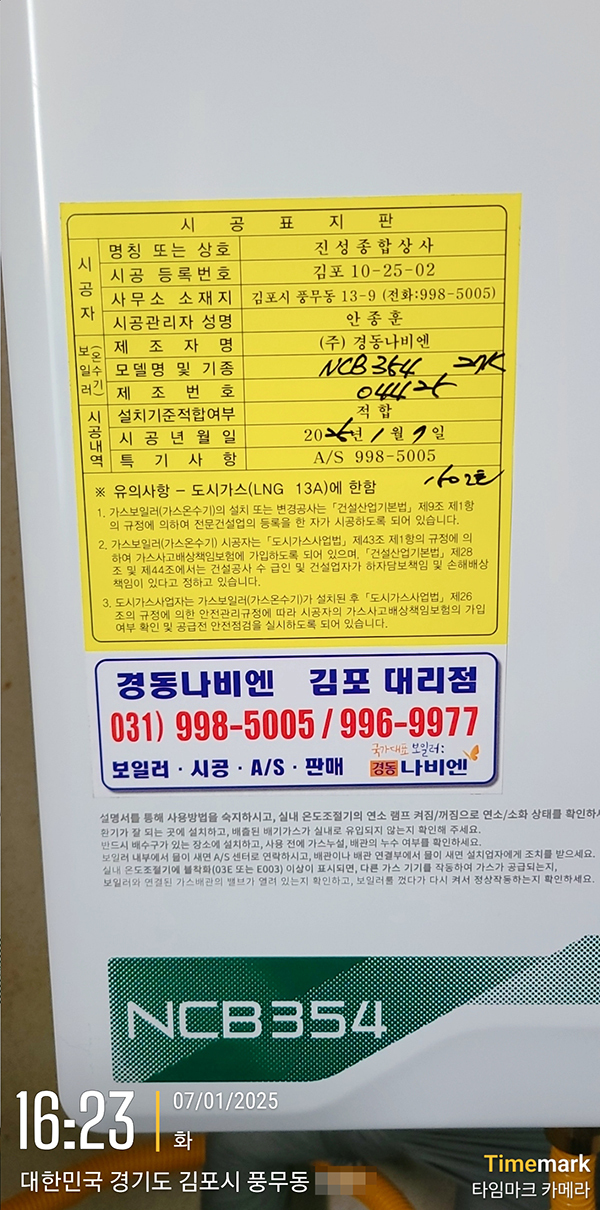 시공표지판
시공자
명칭 또는 상호 진성종합상사
시공 등록번호 김포 10-25-02
사무소 소재지 김포시 풍무동 13-9 (전화:998-5005)
시공관리자 성명 안종훈
보일러 (온수기)
제조자명 (주) 경동나비엔
모델명 및 기종 NCB 354 27K
제조번호 04425
시공내역
설치기준적합여부 적합
시공년월일 2025년 1월 7일
특기사항 A/S 998-5005
1602호
※ 유의사항 - 도시가스(LNG 13A)에 한함
1. 가스보일러(가스온수기)의 설치 또는 변경공사는 「건설산업기본법」제9조 제1항
의 규정에 의하여 전문건설업의 등록을 한 자가 시공하도록 되어 있습니다.
2. 가스보일러(가스온수기) 시공자는 「도시가스사업법」제43조 제1항의 규정에 의
하여 가스사고배상책임보험에 가입하도록 되어 있으며, 「건설산업기본법」제28
조 및 제44조에서는 건설공사 수급인 및 건설업자가 하자담보책임 및 손해배상
책임이 있다고 정하고 있습니다.
3. 도시가스사업자는 가스보일러(가스온수기)가 설치된 후 「도시가스사업법」제26
조의 규정에 의한 안전관리규정에 따라 시공자의 가스사고배상책임보험의 가입
여부 확인 및 공급전 안전점검을 실시하도록 되어 있습니다.
경동나비엔 김포 대리점
031) 998-5005 / 996-9977
국가대표 보일러:
보일러 · 시공 · A/S · 판매 경동나비엔
설명서를 통해 사용방법을 숙지하시고, 실내 온도조절기의 연소 램프 켜짐/꺼짐으로 연소/소화 상태를 확인하
환기가 잘 되는 곳에 설치하고, 배출된 배기가스가 실내로 유입되지 않는지 확인해 주세요.
반드시 배수구가 있는 장소에 설치하고, 사용 전에 가스누설, 배관의 누수 여부를 확인하세요.
보일러 내부에서 물이 새면 A/S 센터로 연락하시고, 배관이나 배관 연결부에서 물이 새면 설치업자에게 조치를 받으세요.
실내 온도조절기에 불착화(03E 또는 E003) 이상이 표시되면, 다른 가스 기기를 작동하여 가스가 공급되는지,
보일러와 연결된 가스배관의 밸브가 열려 있는지 확인하고, 보일러를 껐다가 다시 켜서 정상작동하는지 확인하세요.
NCB354
16:23
07/01/2025
화
대한민국 경기도 김포시 풍무동
Timemark
타임마크 카메라